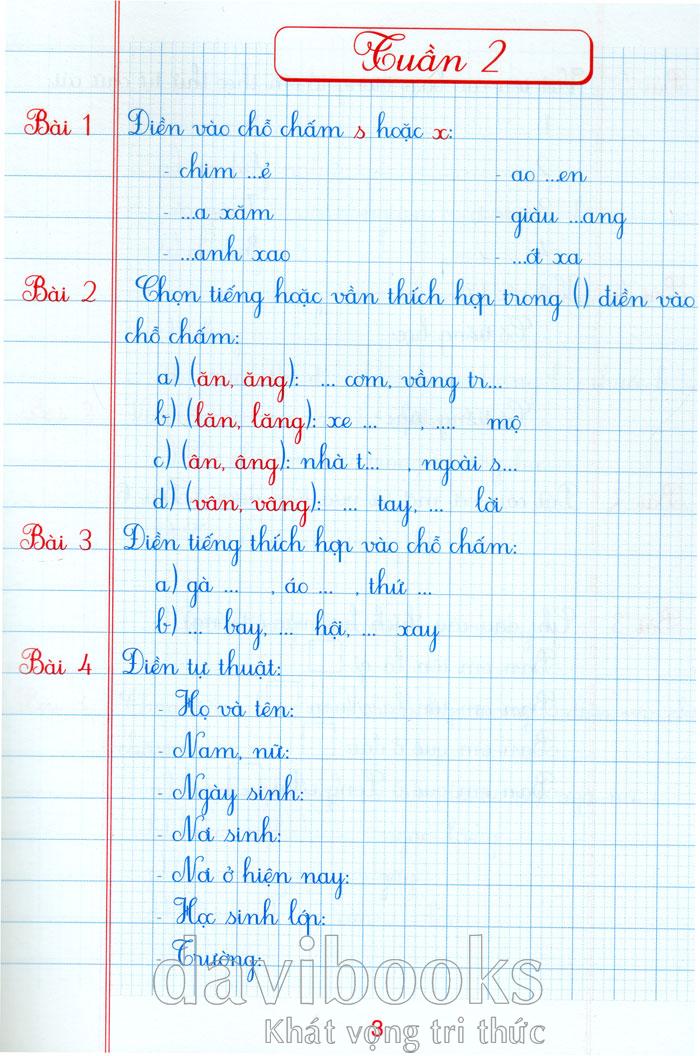 Tuần 2
Bài 1 Điền vào chỗ chấm s hoặc x:
- chim ...ẻ - ao ...en
- ...a xăm - giàu ...ang
- ...anh xao - ...ót xa
Bài 2 Chọn tiếng hoặc vần thích hợp trong () điền vào
chỗ chấm:
a) (ăn, ăng): ... cơm, vầng tr...
b) (lăn, lăng): xe ... , .... mộ
c) (ân, âng): nhà t`... , ngoài s...
d) (vân, vâng): ... tay, ... lời
Bài 3 Điền tiếng thích hợp vào chỗ chấm:
a) gà ... , áo ... , thứ ...
b) ... bay, ... hội, ... xay
Bài 4 Điền tự thuật:
- Họ và tên:
- Nam, nữ:
- Ngày sinh:
- Nơi sinh:
- Nơi ở hiện nay:
- Học sinh lớp:
Trường:
davibooks
Khát vọng tri thức
3